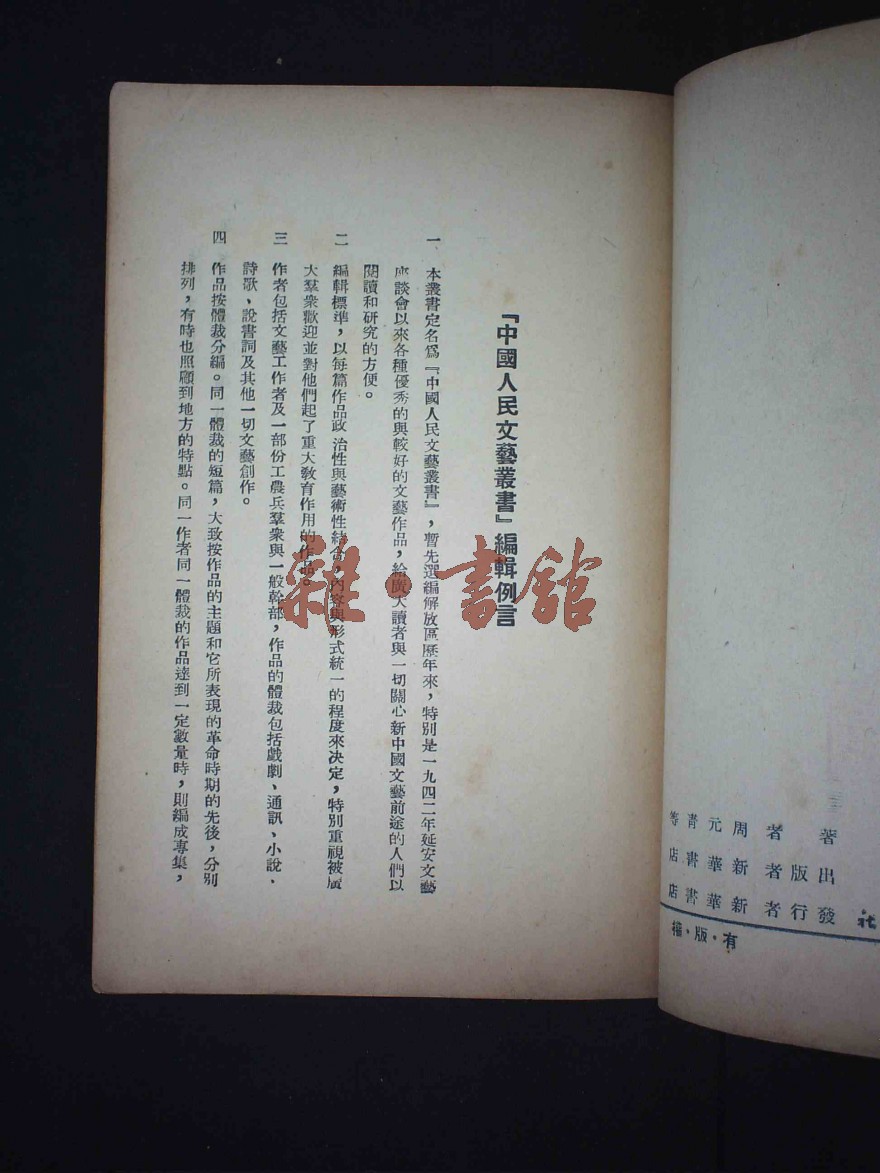 『中國人民文藝叢書』編輯例言
一 本叢書定名爲『中國人民文藝叢書』，暫先選編解放區歷年來，特別是一九四二年延安文藝
座談會以來各種優秀的與較好的文藝作品，給廣大讀者與一切關心新中國文藝前途的人們以
閱讀和研究的方便。
二 編輯標準，以每篇作品政治性與藝術性結合，內容與形式統一的程度來決定，特別重視被廣
大羣衆歡迎並對他們起了重大教育作用的作品。
三 作者包括文藝工作者及一部份工農兵羣衆與一般幹部，作品的體裁包括戲劇、通訊、小說、
詩歌、說書詞及其他一切文藝創作。
四 作品按體裁分編。同一體裁的短篇，大致按作品的主題和它所表現的革命時期的先後，分別
排列，有時也照顧到地方的特點。同一作者同一體裁的作品達到一定數量時，則編成專集，
雜·書館
著者 周元青等
出版者 新華書店
發行者 新華書店
社
有·版·權